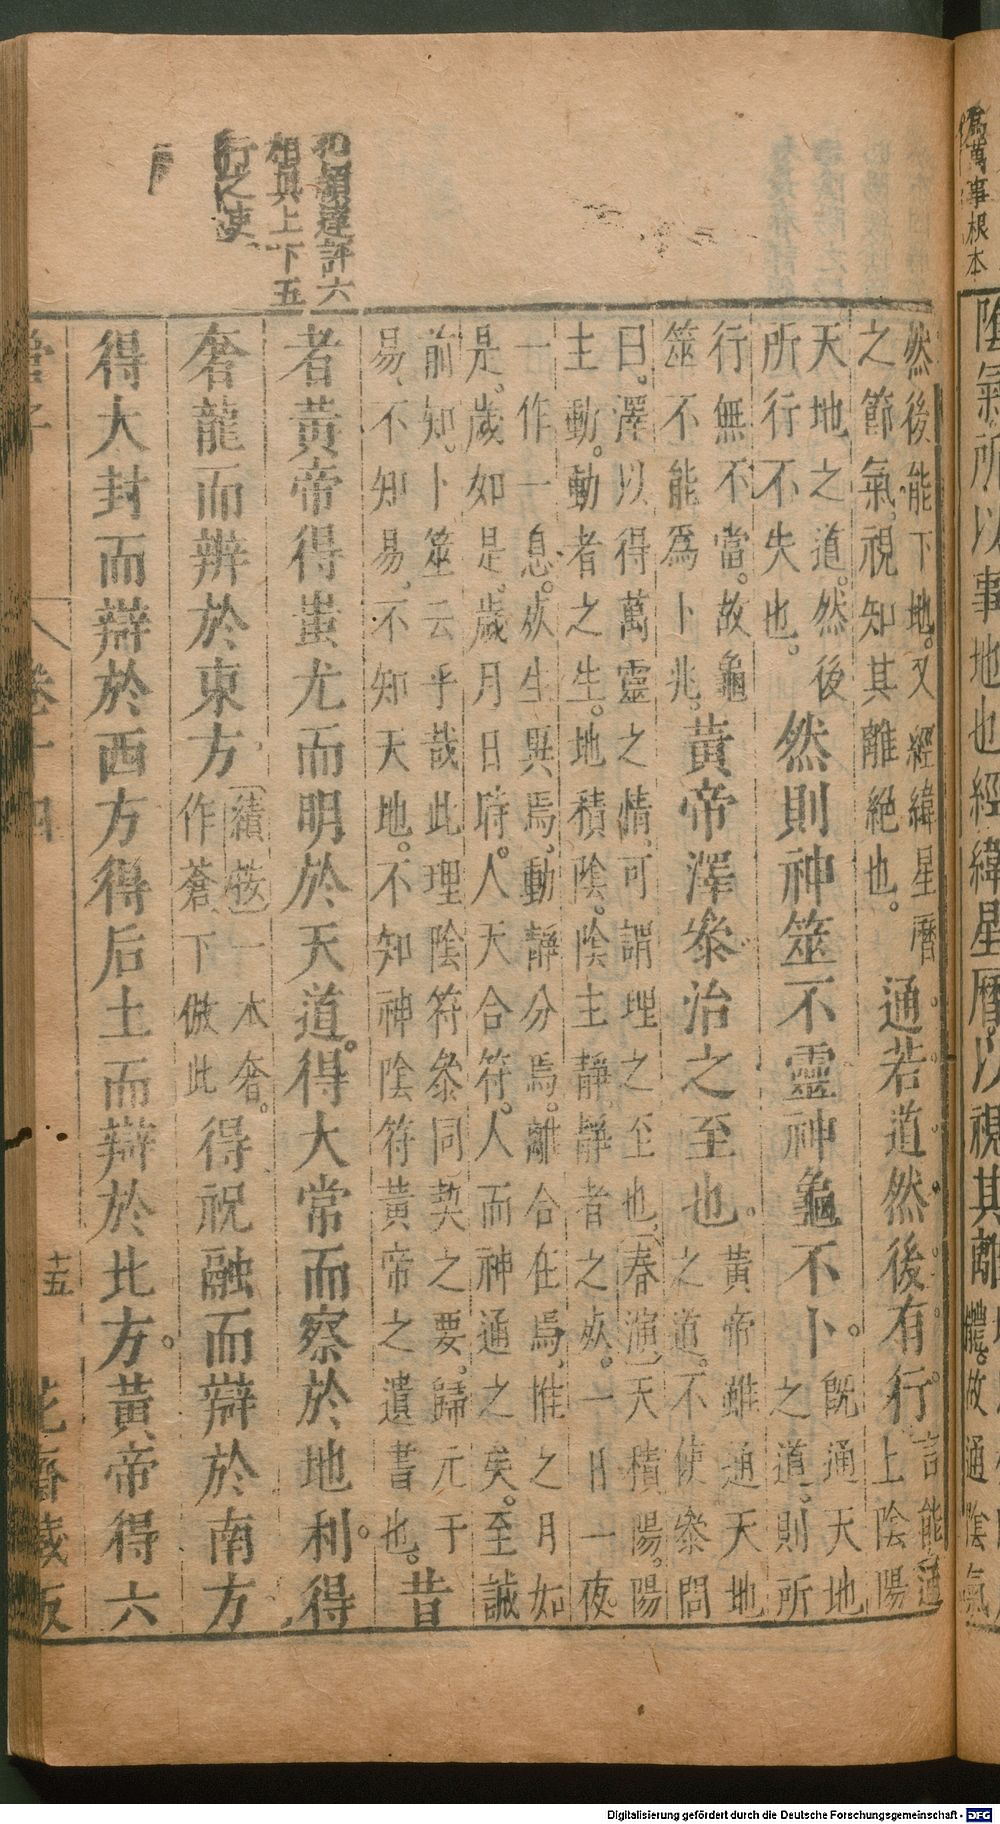 為萬事根本
陰氣所以事地也經緯星曆以視其離
體。故通陰氣
然後能下地。又經緯星曆
之節氣視知其離絕也。
通若道然後有行
言能通
上陰陽
天地之道。然後
所行不失也。
然則神筮不靈神龜不卜。
既通天地
之道。則所
行無不當。故龜
筮不能為卜兆。
黃帝澤參治之至也。
黃帝雖通天地
之道。不使參問
曰。澤以得萬靈之情可謂理之至也(春演)天積陽。陽
主動。動者之生。地積陰。陰主靜靜者之㱙。一日一夜。
一作一息。㱙生異焉動靜分焉。離合在焉惟之月如
是。歲如是。歲月日時。人天合符。人而神通之矣。至誠
前知。卜筮云乎哉此理陰符參同契之要。歸元于
易、不知易、不知天地。不知神陰符黃帝之遺書也。
昔
者黃帝得蚩尤而明於天道。得大常而察於地利。得
奢龍而辨於東方
(績按)一本奢。
作蒼下倣此
得祝融而辯於南方
得大封而辯於西方得后土而辯於北方。黃帝得六
孔穎達評六
相與上下五
行之吏
管子 卷十四 十五 花齋藏版
Digitalisierung gefördert durch die Deutsche Forschungsgemeinschaft - DFG